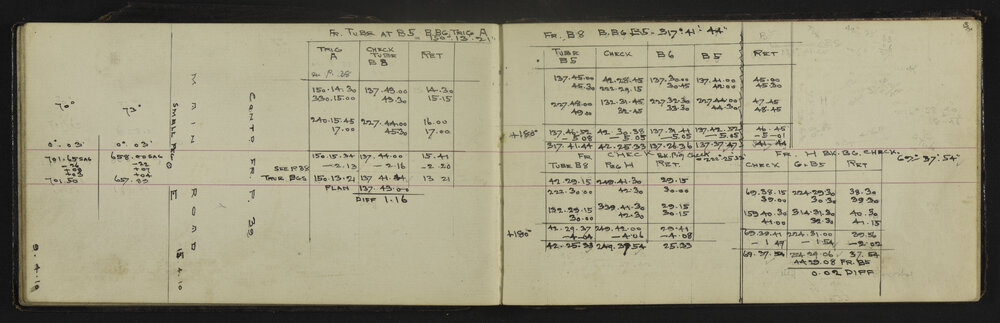 FR. TUBE AT B5 B.BG. TRIG A
150° 13' 21"
TRIG A CHECK TUBE B8 RET
150.14.30 137.43.00 14.30
330.15.00 43.30 15.15
240.15.45 227.44.00 16.00
17.00 45.30 17.00
150.15.34 137.44.00 15.41
-2.13 -2.16 -2.20
SEE P. 38
TRUE BGS 150.13.21 137.41.44 13 21
PLAN 137.43.00
DIFF 1.16
70° 73°
0'.03' 0'.03'
701.65 SAG 658.00 SAG
-26 -22
+03 +07
+03 +04
701.50 657.89
MAIN ROAD
SMELL RD
CONTD FR P. 39
15.4.10
9.4.10
FR. B8 B.BG B5 = 317° 41' 44"
TUBE B5 CHECK B6 B5 RET
137.45.00 42.28.45 137.30.00 137.41.00 45.00
45.30 222.29.15 30.45 42.00 45.30
227.48.00 132.31.45 227.32.30 227.44.00 47.45
49.00 32.45 33.30 44.30 48.45
+180° 137.46.52 42.30.38 137.31.41 137.42.52 46.45
-5.08 -5.05 -5.05 -5.05 -5-01
317.41.44 42.25.33 137.26.36 137.37.47 41.44
FR. CHECK BK. BG. CHECK
= 222° 25' 33"
TUBE B8 PEG H RET.
42.29.15 249.41.30 29.15
222.30.00 42.30 30.00
132.29.15 339.41.30 29.15
30.00 42.30 30.15
+180° 42.29.37 249.42.00 29.41
-4-04 -4.06 -4.08
42.25.33 249.37.54 25.33
FR. H BK. BG. CHECK.
69° 37' 54"
CHECK G. B5 RET
69.38.15 224.29.30 38.30
39.00 30.30 39.30
159.40.30 314.31.30 40.30
41.00 32.30 41.15
69.39.41 224.31.00 39.56
-1.47 -1.54 -2.02
69.37.54 224.29.06 37.54
44.29.08 FR. B5
0.02 DIFF